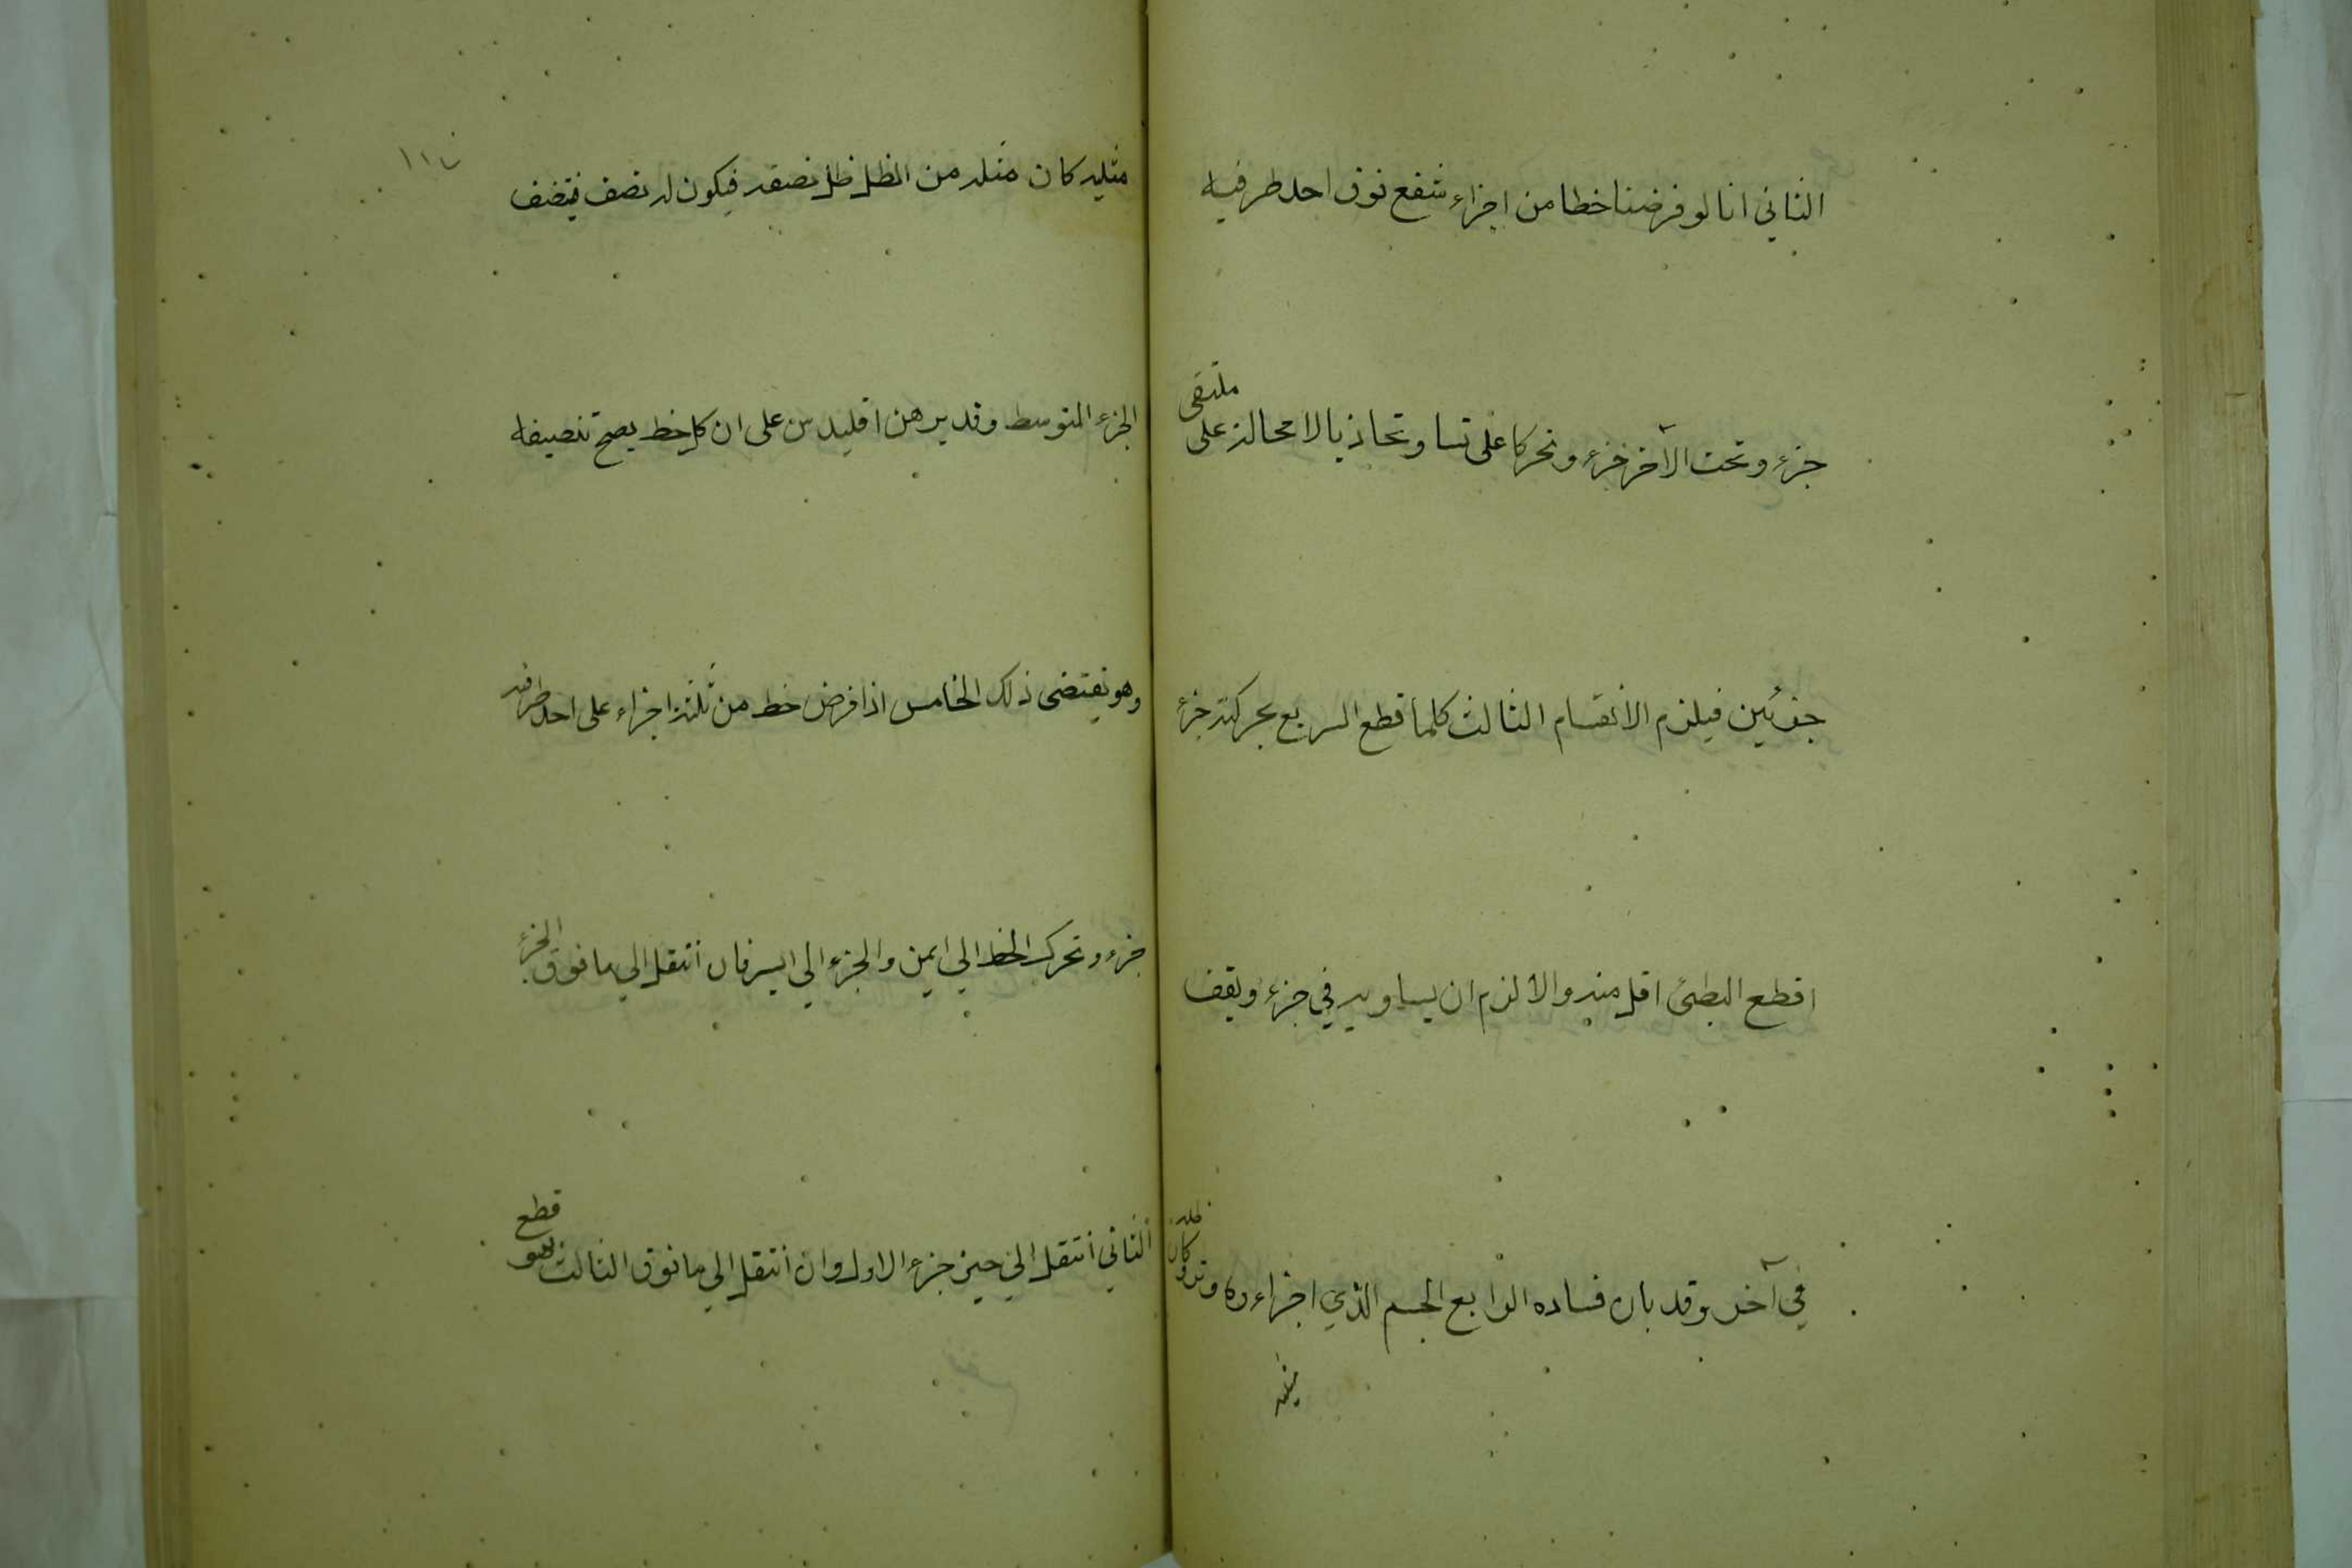 الثاني انا لو فرضنا خطا من اجزاء شفع فوق احد طرفيه
جزء وتحت الآخر جزء وتحركا على تساو تحاذيا لا محالة على
ملتقى
جزئين فيلزم الانقسام الثالث كلما قطع السريع بحركته جزء
اقطع البطئ اقل منه والا لزم ان يساويه في جزء ويقف
في آخر وقد بان فساده الرابع الجسم الذي اجزاءه وتر وكان
ظله
مثليه
١١٧
مثليه كان مثله من الظل ظل نصفه فيكون له نصف فيتنصف
الجزء المتوسط وقد برهن اقليدس على ان كل خط يصح تنصيفه
وهو يقتضى ذلك الخامس اذا فرض خط من ثلثة اجزاء على احد طرفيه
جزء وتحرك الخط الي ايمن والجزء الي ايسر فان انتقل الي ما فوق الجزء
الثاني انتقل الي حيز جزء الاول وان انتقل الي ما فوق الثالث فهو
قطع